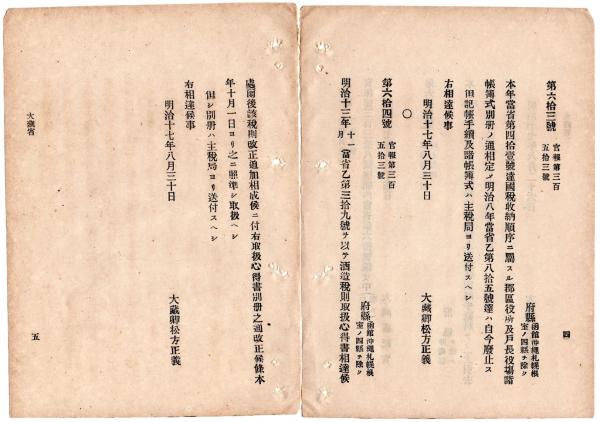 四
第六拾三號 官報第三百五拾三號
府縣 函館沖繩札幌根室ノ四縣ヲ除ク
本年當省第四拾壹號達國稅收納順序ニ關スル郡區役所及戶長役場諸
帳簿式別册ノ通相定メ明治八年當省乙第八拾五號達ハ自今廢止ス
但記帳手續及諸帳簿式ハ主稅局ヨリ送付スヘシ
右相達候事
明治十七年八月三十日
大藏卿松方正義
○
第六拾四號 官報第三百五拾三號
府縣 函館沖繩札幌根室ノ四縣ヲ除ク
明治十三年十一月當省乙第三拾九號ヲ以テ酒造稅則取扱心得書相達候
處爾後該稅則改正追加相成候ニ付右取扱心得書別册之通改正候條本
年十月一日ヨリ之ニ照準シ取扱ヘシ
但シ別册ハ主稅局ヨリ送付スヘシ
右相達候事
明治十七年八月三十日
大藏卿松方正義
大藏省
五